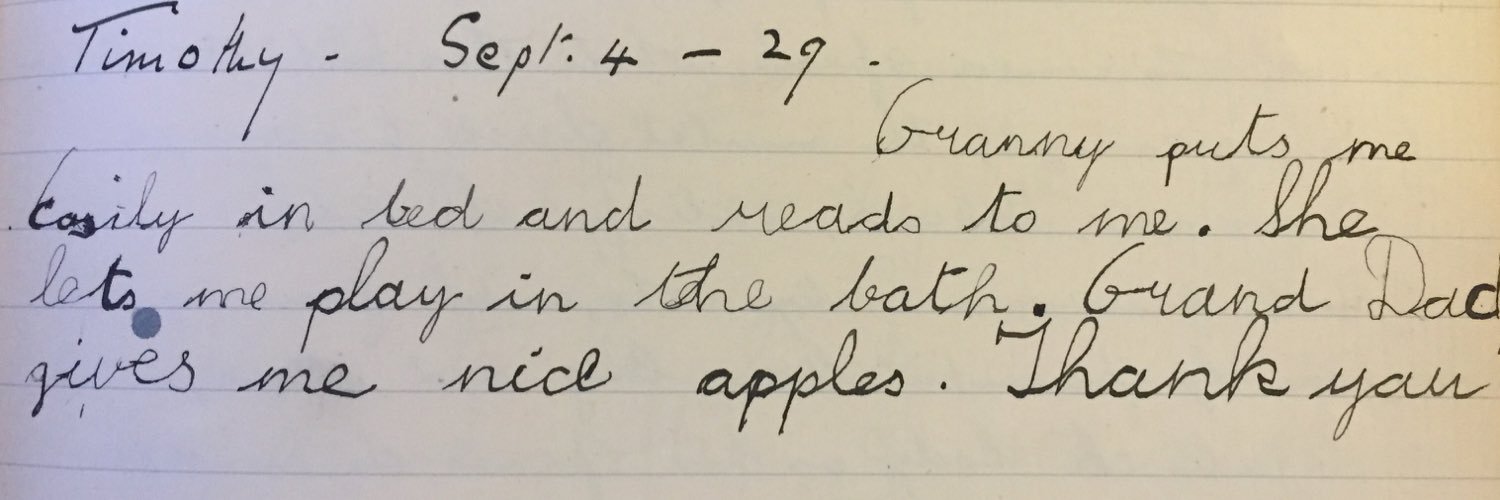 Timothy - Sept. 4 - 29.
Granny puts me
Cosily in bed and reads to me. She
lets me play in the bath. Grand Dad
gives me nice apples. Thank you